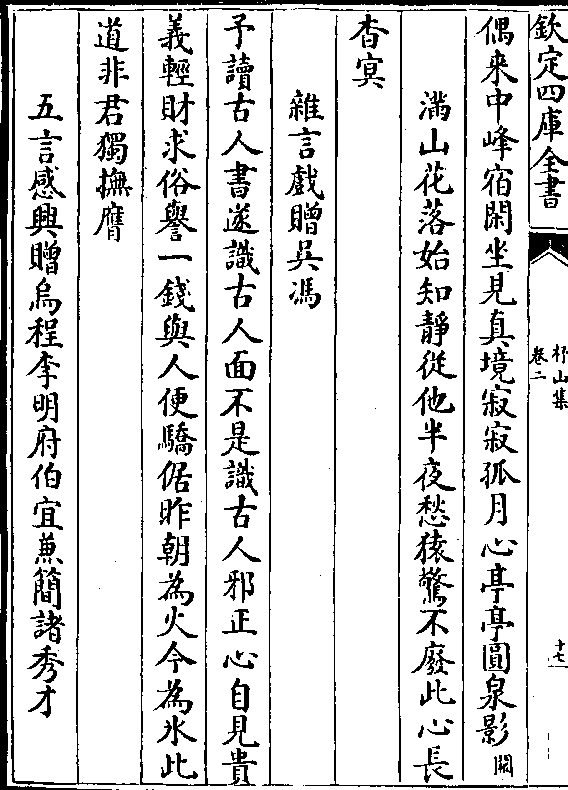 欽定四庫全書
杼山集
卷二
十七
偶来中峰宿閑坐見真境寂寂孤月心亭亭圓泉影闕
滿山花落始知靜從他半夜愁猿驚不廢此心長
杳冥
雜言戲贈吳馮
予讀古人書遂識古人面不是識古人邪正心自見貴
義輕財求俗譽一錢與人便驕倨昨朝為火今為氷此
道非君獨撫膺
五言感興贈烏程李明府伯宜蒹簡諸秀才